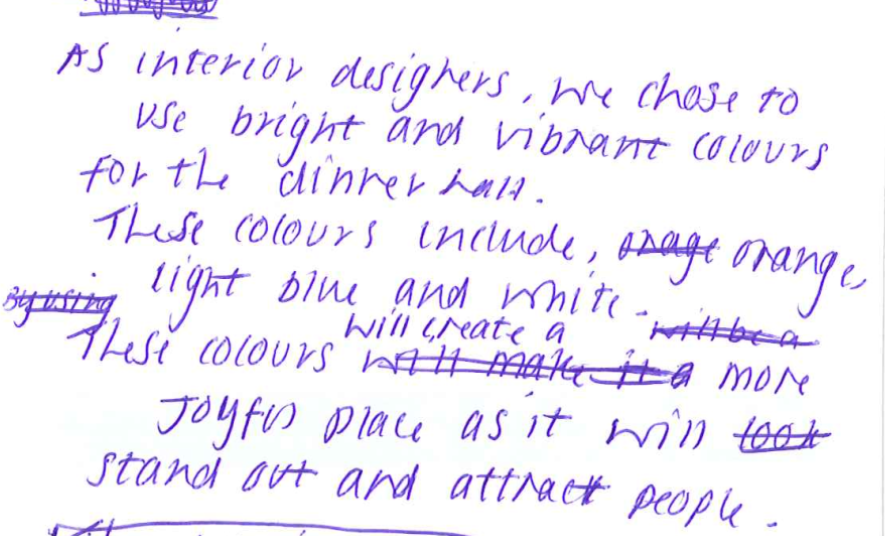 As interior designers, we chose to
use bright and vibrant colours
for the dinner hall.
These colours include, orage orange,
By using light blue and white. will be a
will create a
These colours will make it a more
Joyful place as it will look
stand out and attract people.